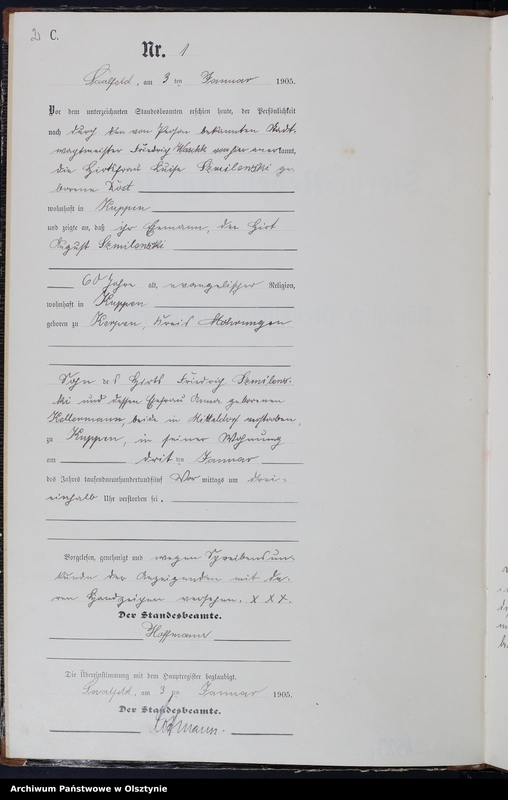 C.
Nr. 1
Saalfeld, am 3 ten Januar 1905.
Vor dem unterzeichneten Standesbeamten erschien heute, der Persönlichkeit
nach durch den von Person bekannten Stadt-
wachtmeister Friedrich von hier anerkannt,
die Hirtsfrau Luise Szmilewski ge-
borene Tost
wohnhaft in Kuppen
und zeigte an, daß ihr Ehmann, der Hirt
August Szmilewski
60 Jahre alt, evangelischer Religion,
wohnhaft in Kuppen
geboren zu Kerpen, Kreis Mohrungen
Sohn des Hirts Friedrich Szmilews-
ki und dessen Ehefrau Anna geborenen
Kellermann, beide in Mitteldorf verstorben,
zu Kuppen, in seiner Wohnung
am dritten Januar
des Jahres tausendneunhundertundfünf Vor mittags um drei-
einhalb Uhr verstorben sei.
Vorgelesen, genehmigt und wegen Schreibensun-
kunde der Anzeigenden mit de-
ren Handzeichen versehen. X X X.
Der Standesbeamte.
Hoffmann
Die Übereinstimmung mit dem Hauptregister beglaubigt.
Saalfeld, am 3 ten Januar 1905.
Der Standesbeamte.
Hoffmann.
Archiwum Państwowe w Olsztynie